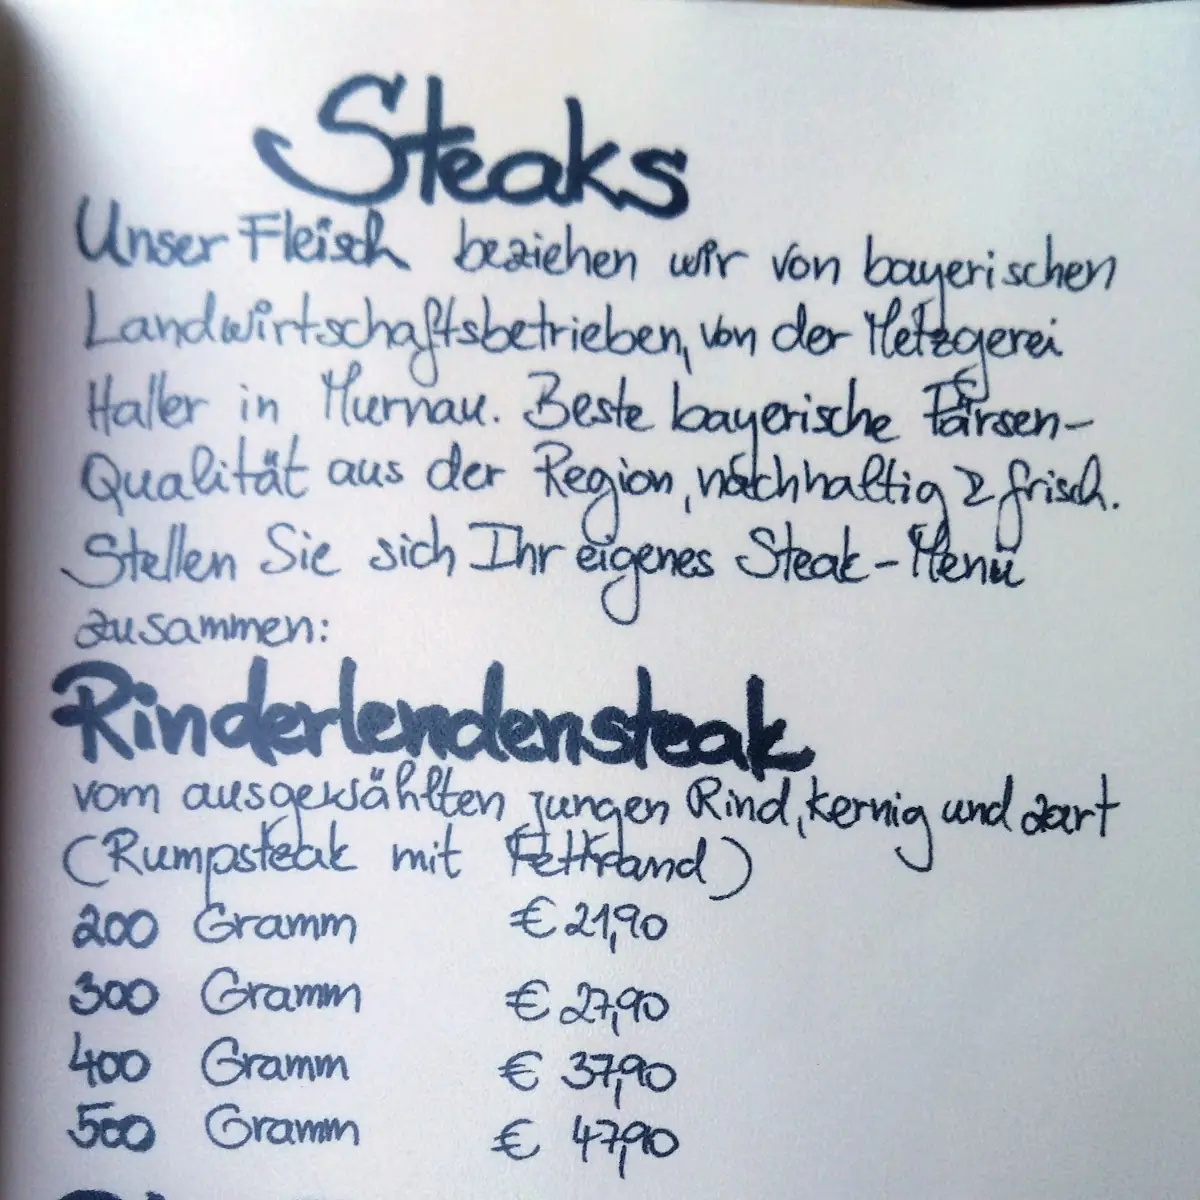 Steaks
Unser Fleisch beziehen wir von bayerischen
Landwirtschaftsbetrieben, von der Metzgerei
Haller in Murnau. Beste bayerische Färsen-
Qualität aus der Region, nachhaltig & frisch.
Stellen Sie sich Ihr eigenes Steak-Menü
zusammen:
Rinderlendensteak
vom ausgewählten jungen Rind, kernig und zart
(Rumpsteak mit Fettrand)
200 Gramm € 21,90
300 Gramm € 27,90
400 Gramm € 37,90
500 Gramm € 47,90